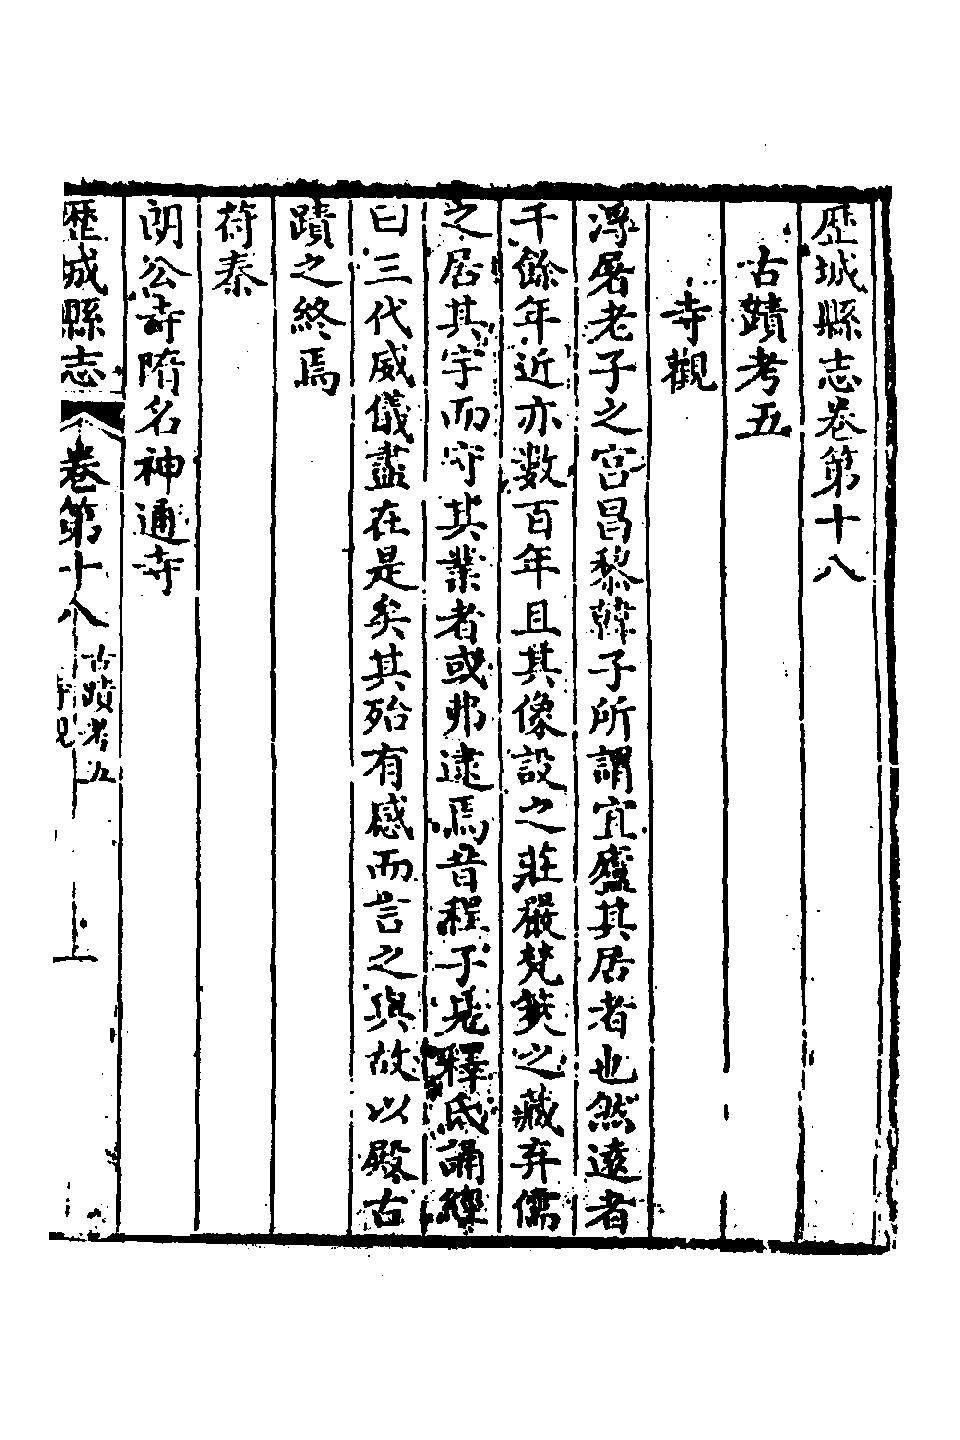 歷城縣志卷第十八
古蹟考五
寺觀
浮屠老子之宫昌黎韓子所謂宜廬其居者也然遠者
千餘年近亦數百年且其像設之莊嚴梵筴之藏弆儒
之居其宇而守其業者或弗逮焉昔程子見釋氏誦經
曰三代威儀盡在是矣其殆有感而言之與故以殿古
蹟之終焉
苻秦
朗公寺隋名神通寺
歷城縣志
卷第十八
古蹟考五
寺觀
上